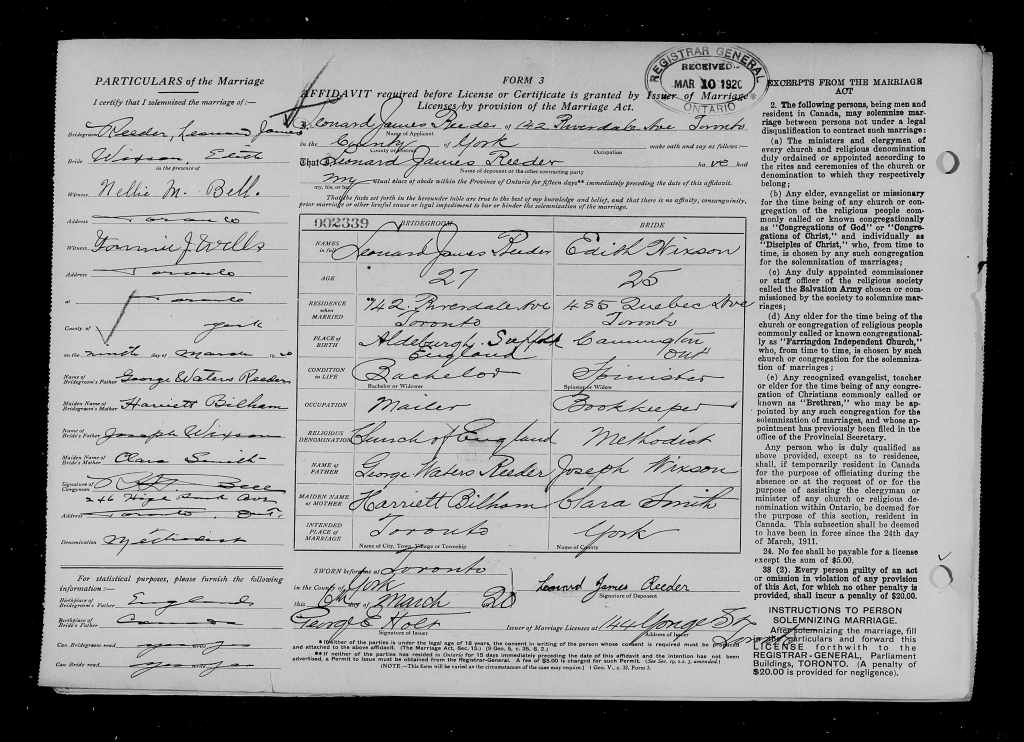 PARTICULARS of the Marriage
I certify that I solemnized the marriage of:—
Bridegroom Reeder, Leonard James
Bride Wixson, Edith
in the presence of
Witness Nellie M. Bell.
Address Toronto
Witness J. Wells
Address Toronto
at Toronto
County of York
on the ninth day of March
Name of Bridegroom's Father George Waters Reeder
Maiden Name of Bridegroom's Mother Harriett Bilham
Name of Bride's Father Joseph Wixson
Maiden Name of Bride's Mother Clara Smith
Signature of Clergyman
Address Toronto Ont.
Denomination Methodist
For statistical purposes, please furnish the following
information:—
Birthplace of Bridegroom's Father England
Birthplace of Bride's Father Canada
Can Bridegroom read
Can Bride read
REGISTRAR GENERAL
RECEIVED
MAR 10 1920
ONTARIO
FORM 3
AFFIDAVIT required before License or Certificate is granted by Issuer of Marriage
Licenses by provision of the Marriage Act.
I, Leonard James Reeder of 142 Riverdale Ave Toronto
Name of Applicant
in the County of York make oath and say as follows:—
County or District
Occupation
That Leonard James Reeder have had
Name of deponent or the other contracting party
my usual place of abode within the Province of Ontario for fifteen days** immediately preceding the date of this affidavit.
my, his, or her
That the facts set forth in the hereunder table are true to the best of my knowledge and belief, and that there is no affinity, consanguinity,
prior marriage or other lawful cause or legal impediment to bar or hinder the solemnization of the marriage.
002339 BRIDEGROOM BRIDE
NAMES in full Leonard James Reeder Edith Wixson
AGE 27 25
RESIDENCE when MARRIED 142 Riverdale Ave Toronto 485 Quebec Ave Toronto
PLACE OF BIRTH Aldeburgh. Suffolk England Cannington Ont
CONDITION IN LIFE Bachelor Spinister
Bachelor or Widower Spinster or Widow
OCCUPATION Mailer Bookkeeper
RELIGIOUS DENOMINATION Church of England Methodist
NAME OF FATHER George Waters Reeder Joseph Wixson
MAIDEN NAME OF MOTHER Harriett Bilham Clara Smith
INTENDED PLACE OF MARRIAGE Toronto York
Name of City, Town, Village or Township Name of County
SWORN before me at Toronto
in the County of York
this 6th day of March 20
Leonard James Reeder
Signature of Deponent
George E Holt Issuer of Marriage Licenses at 144 Yonge St Toronto
Signature of Issuer Address of Issuer
*If either of the parties is under the legal age of 18 years, the consent in writing of the person whose consent is required must be produced
and attached to the above affidavit. (The Marriage Act, Sec. 15.) (9 Geo. 5, c. 35, S. 2.)
**If neither of the parties has resided in Ontario for 15 days immediately preceding the date of this affidavit and the intention has not been
advertised, a Permit to Issue must be obtained from the Registrar-General. A fee of $5.00 is charged for such Permit. (See Sec. 19, s.s. 3, amended.)
(NOTE.—This form will be varied as the circumstances of the case may require.) 1 Geo. V., c. 32, Form 3.
EXCERPTS FROM THE MARRIAGE
ACT
2. The following persons, being men and
resident in Canada, may solemnize mar-
riage between persons not under a legal
disqualification to contract such marriage:
(a) The ministers and clergymen of
every church and religious denomination
duly ordained or appointed according to
the rites and ceremonies of the church or
denomination to which they respectively
belong;
(b) Any elder, evangelist or missionary
for the time being of any church or con-
gregation of the religious people com-
monly called or known congregationally
as "Congregations of God" or "Congre-
gations of Christ," and individually as
"Disciples of Christ," who, from time to
time, is chosen by any such congregation
for the solemnization of marriages;
(c) Any duly appointed commissioner
or staff officer of the religious society
called the Salvation Army chosen or com-
missioned by the society to solemnize mar-
riages;
(d) Any elder for the time being of the
church or congregation of religious people
commonly called or known congregational-
ly as "Farringdon Independent Church,"
who, from time to time, is chosen by such
church or congregation for the solemniza-
tion of marriages;
(e) Any recognized evangelist, teacher
or elder for the time being of any congre-
gation of Christians commonly called or
known as "Brethren," who may be ap-
pointed by any such congregation for the
solemnization of marriages, and whose ap-
pointment has previously been filed in the
office of the Provincial Secretary.
Any person who is duly qualified as
above provided, except as to residence,
shall, if temporarily resident in Canada
for the purpose of officiating during the
absence or at the request of or for the
purpose of assisting the clergyman or
minister of any church or religious de-
nomination within Ontario, be deemed for
the purpose of this section, resident in
Canada. This subsection shall be deemed
to have been in force since the 24th day
of March, 1911.
24. No fee shall be payable for a license
except the sum of $5.00.
38 (2). Every person guilty of an act
or omission in violation of any provision
of this Act, for which no other penalty is
provided, shall incur a penalty of $20.00.
INSTRUCTIONS TO PERSON
SOLEMNIZING MARRIAGE.
After solemnizing the marriage, fill
in the particulars and forward this
LICENSE forthwith to the
REGISTRAR-GENERAL, Parliament
Buildings, TORONTO. (A penalty of
$20.00 is provided for negligence).